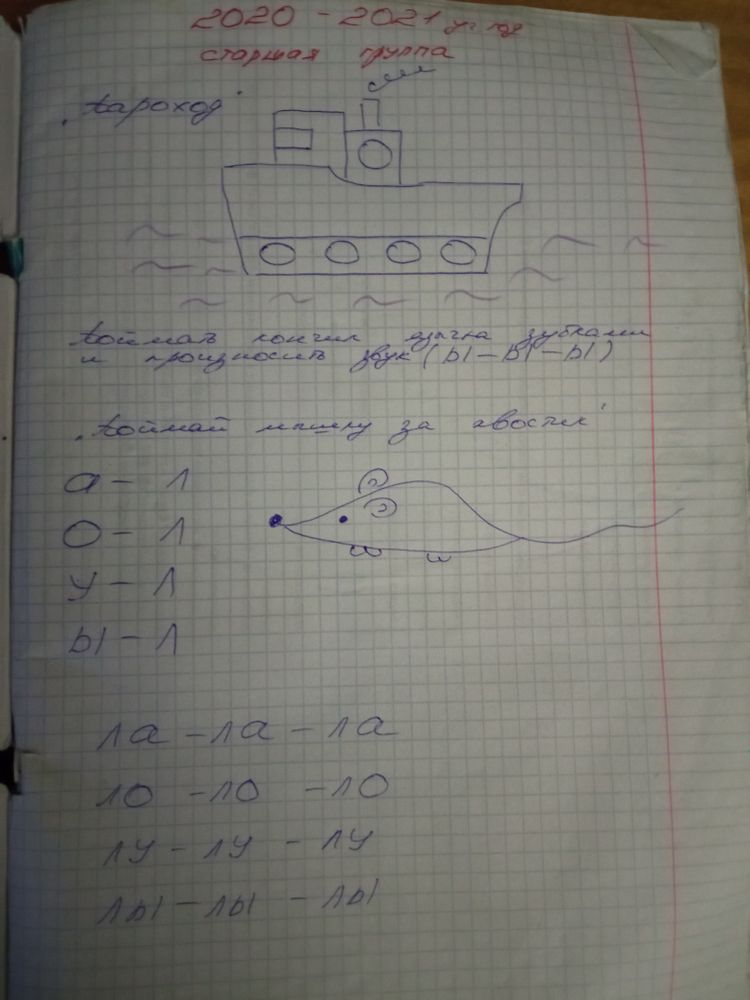 2020 - 2021 уч год
старшая группа
"Пароход"
Поймать кончик язычка зубками
и произносить звук (ы - ы - ы)
"Поймай мышку за хвостик"
а - л
о - л
у - л
ы - л
ла - ла - ла
ло - ло - ло
лу - лу - лу
лы - лы - лы